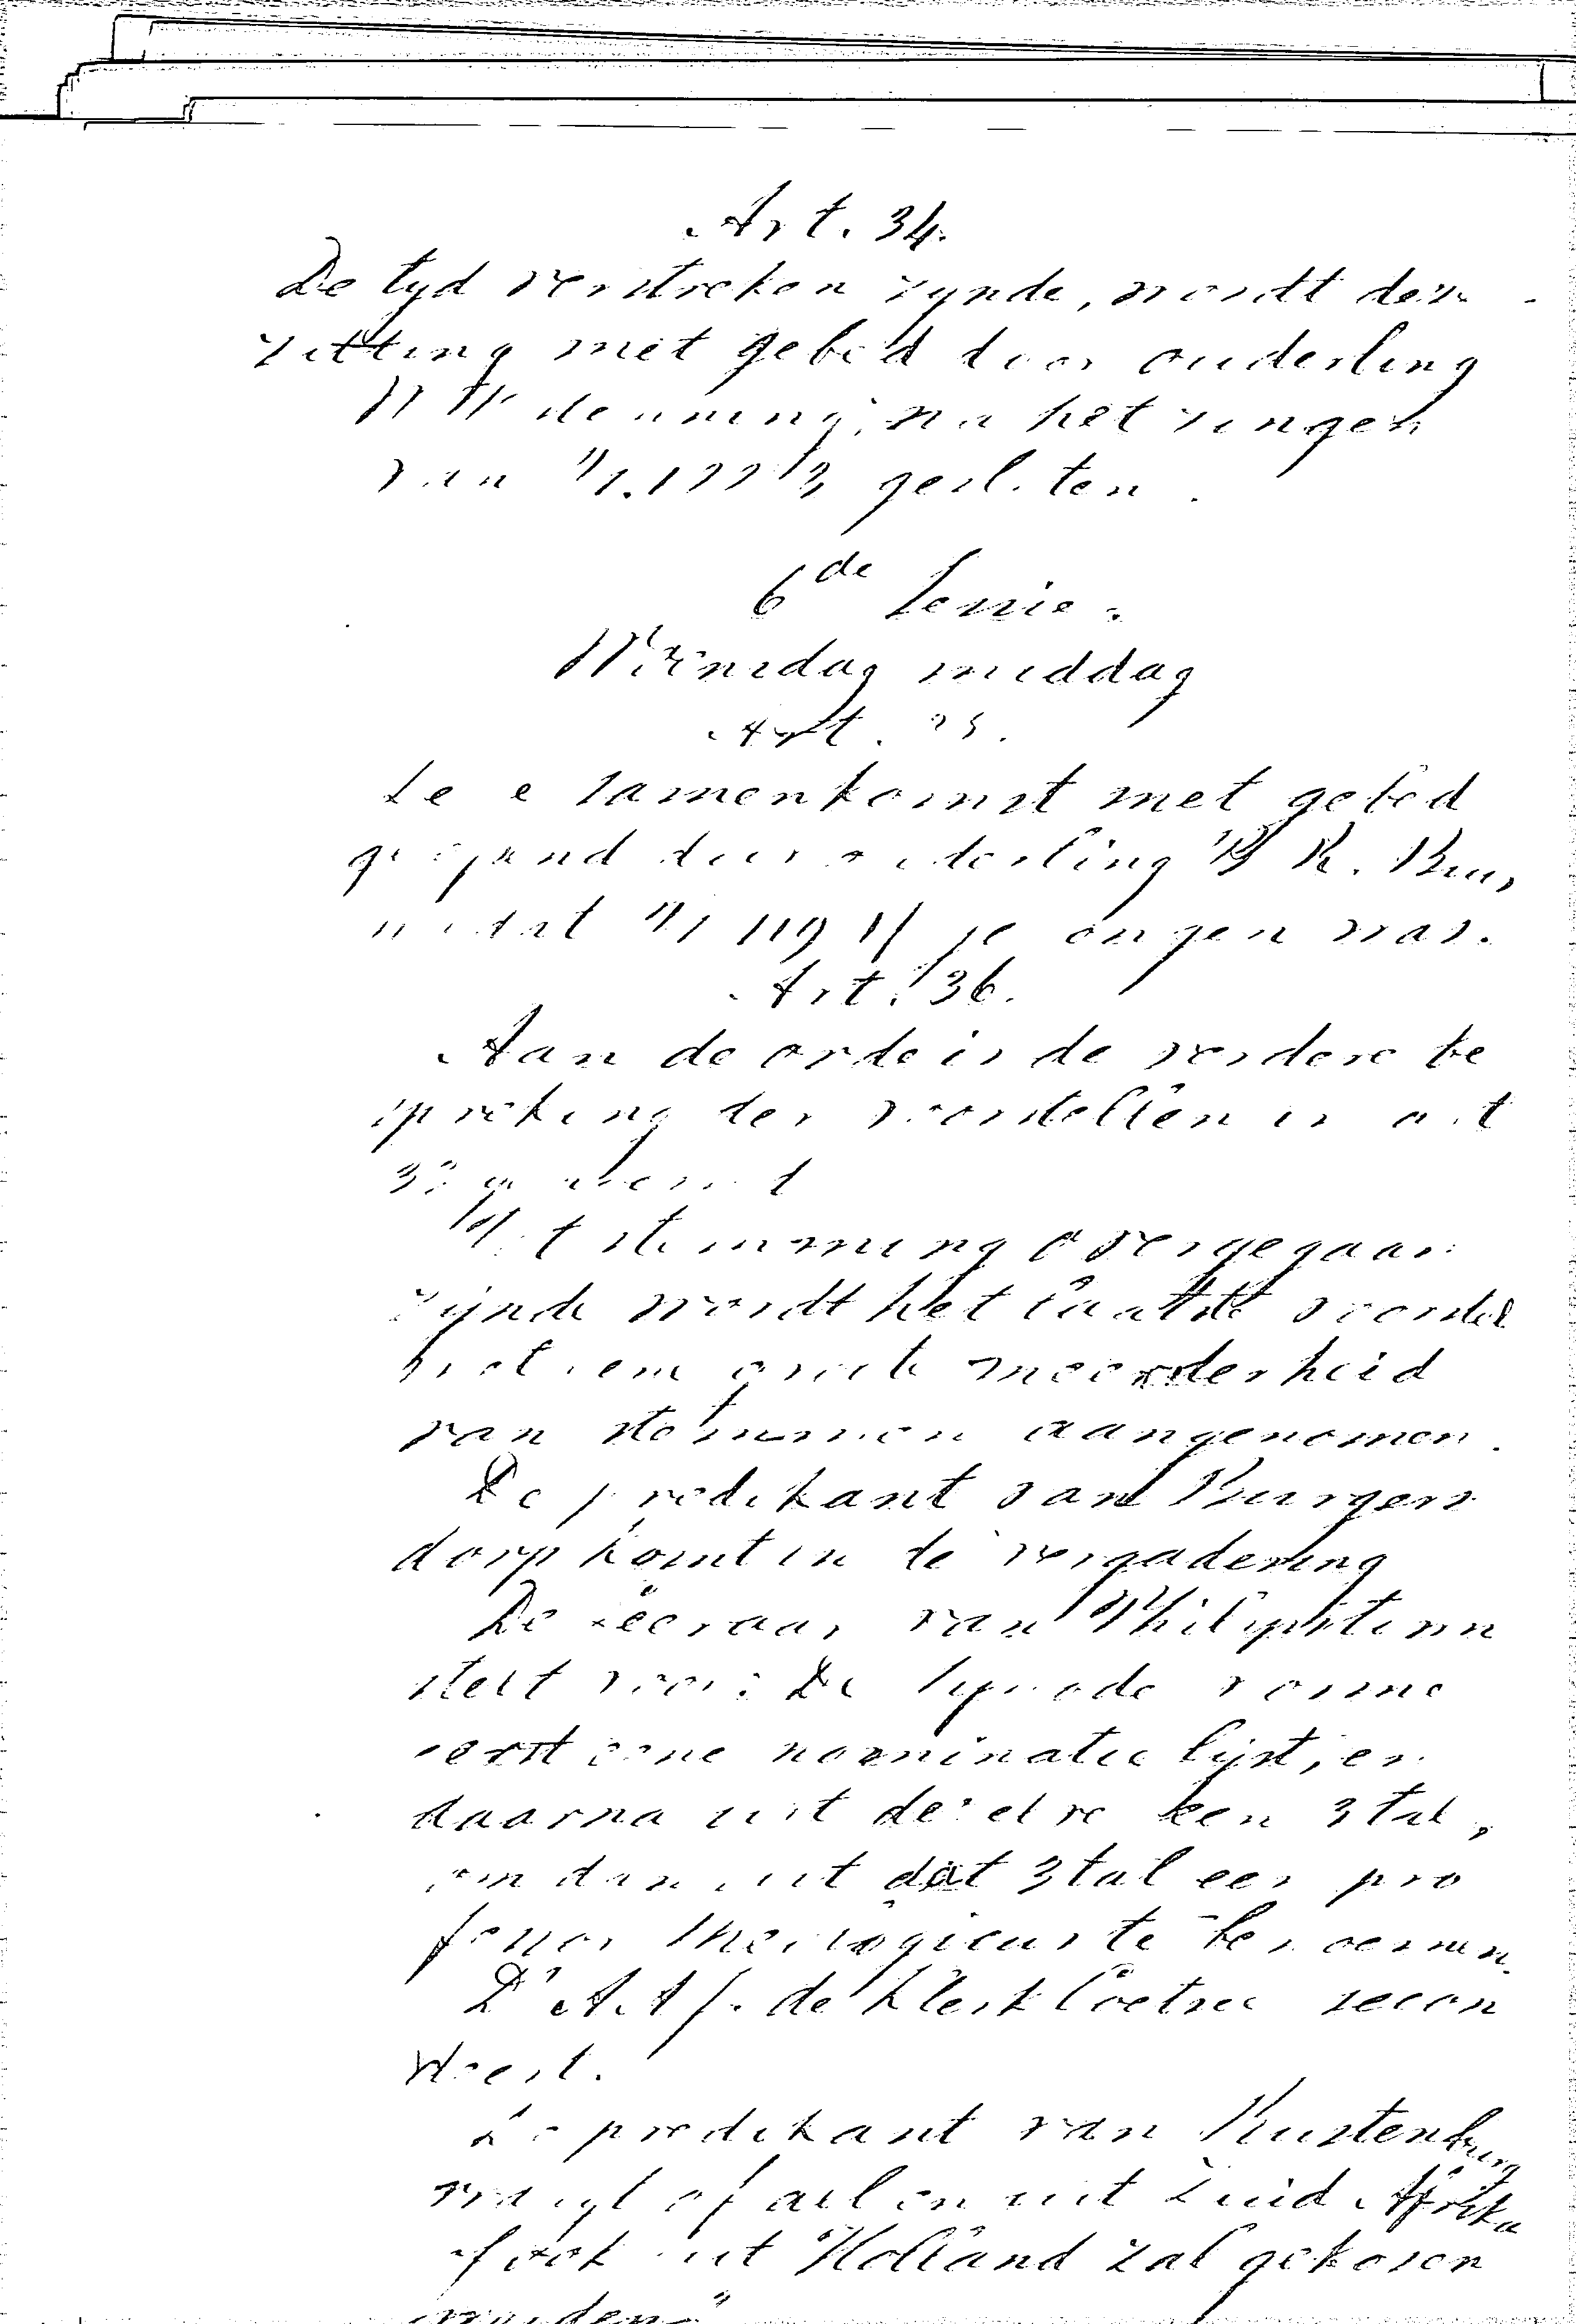 Art. 34.
De tyd verstreken zynde, wordt deze
zitting met gebed door ouderling
na het zingen
van gesloten.
6de Sessie.
Woensdag middag
Art. 35.
samenkomst met gebed
geopend door ouderling
nadat gezongen was.
Art. 36.
Aan de orde is de verdere be
spreking der voorstellen in art
33
Tot stemming overgegaan
zijnde wordt het laatste voorstel
met eene groote meerderheid
van stemmen aangenomen.
De predikant van Burgers
dorp komt in de vergadering
De leeraar van Philipstown
stelt voor: De Synode vorme
eerst eene nominatie lijst, en
daarna uit dezelve een 3tal,
om dan uit dat 3tal een pro
fessor theologicus te benoemen.
Ds A.A.J. de Klerk Coetzee secon
deert.
De predikant van Rustenburg
vraagt of alleen uit Zuid Afrika
of ook uit Holland zal gekozen
worden